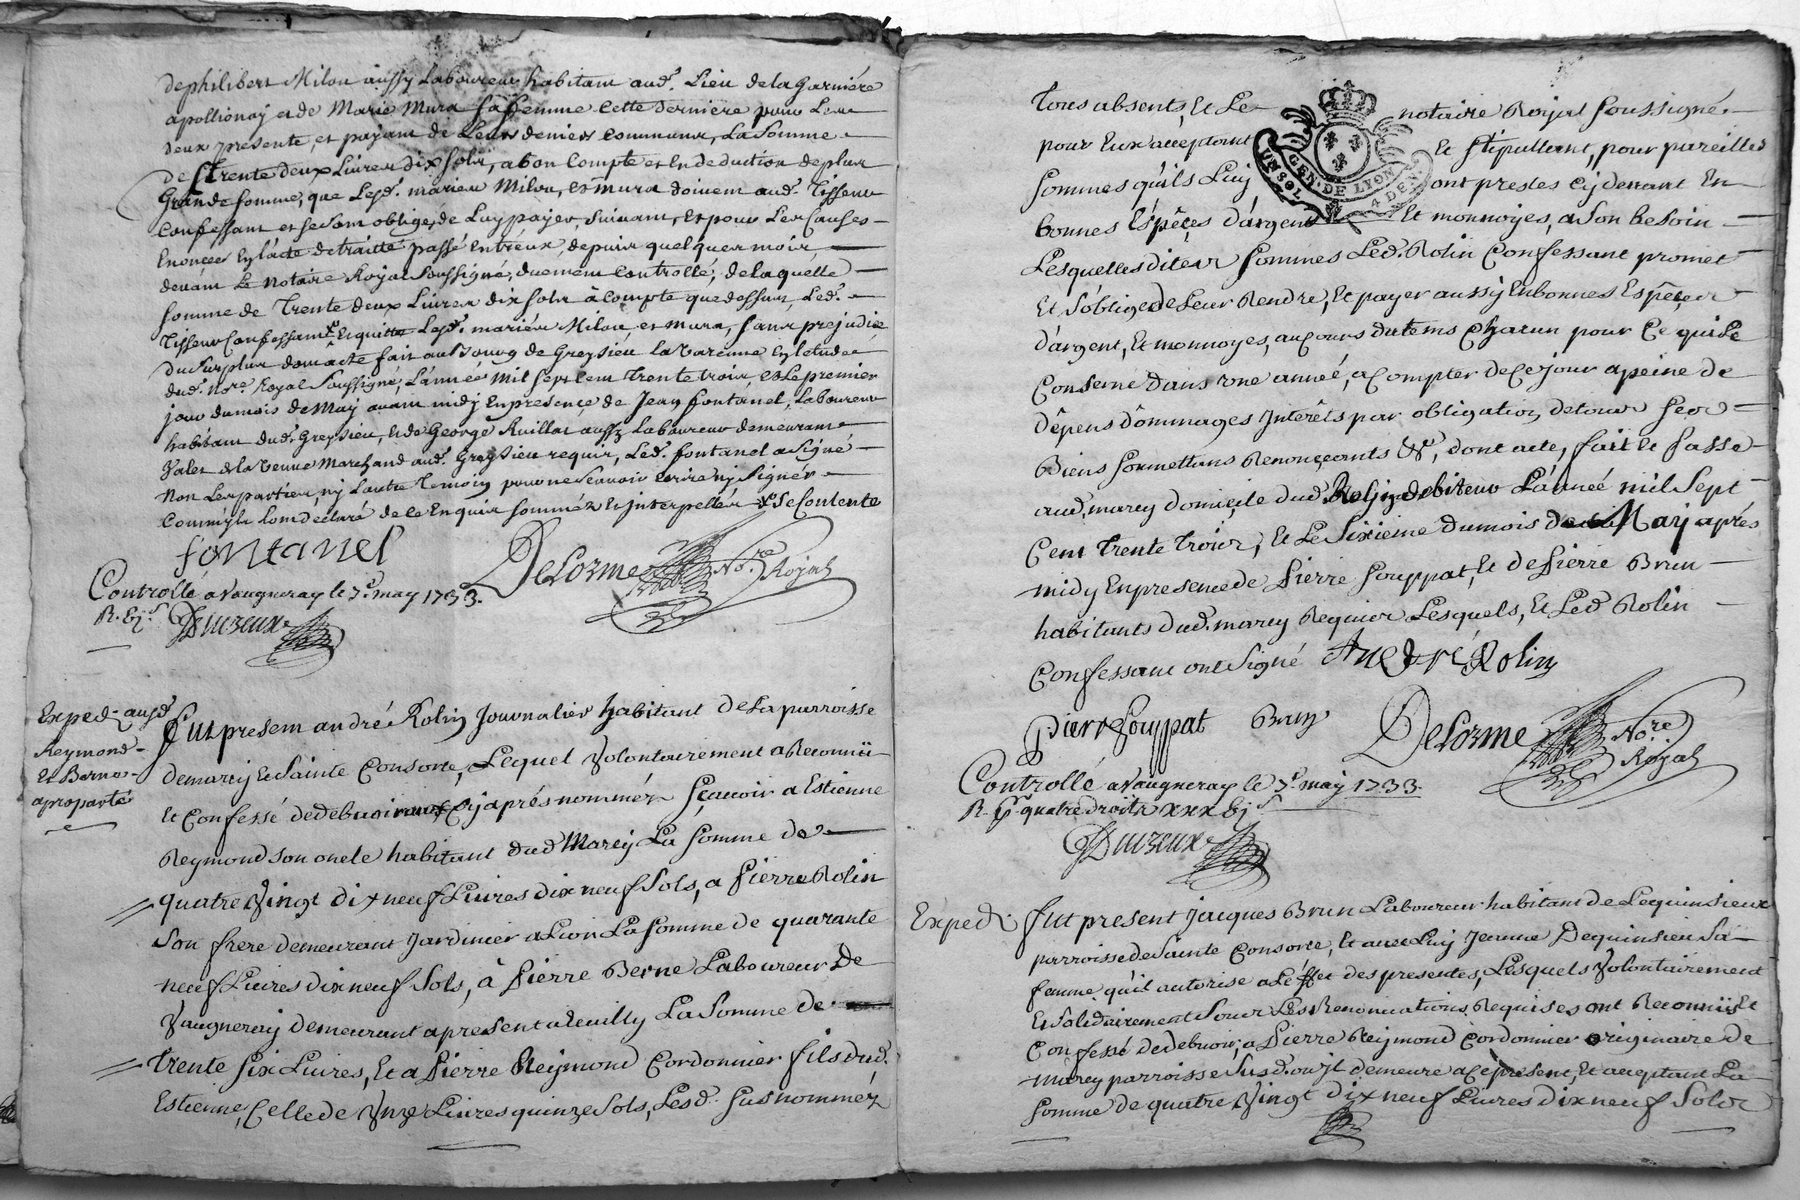 de philibert Milon aussy Laboureur habitant aud. Lieu de la Garniére
apollionay et de Marie Mura sa femme cette derniere pour Lesd
deux presente et payant de Leurs deniers communs, La Somme
de trente deux Livres dix sols, a bon Compte et en deduction de plus
Grande somme, que Lesd. mariéz Milon, et mura doivent aud. Tisseur
confessant et se sont obligéz de Luy payer, suivant, et pour Les Causes
Enoncées En l'acte de traitté passé Entreux, depuis quelques mois
devant Le Notaire Royal Soussigné, duement controllé, de laquelle
somme de Trente deux Livres dix sols à compte que dessus, Led.
Tisseur Confessant Et quitte Lesd. mariéz Milon et mura, sans prejudice
du surplus dont acte fait au Bourg de Greysieu la Varenne En l'etude
dud. No.re Royal Soussigné, L'année Mil sept cent trente trois, et Le premier
jour du mois de May avant midy En presence de Jean fontanel, Laboureur
habitant dud. Greysieu, et de George Ruillat aussy Laboureur demeurant
Valet de la Veuve Marchand aud. Greysieu requis, Led. fontanel a signé
non Les parties, ny L'autre Temoin pour ne scavoir Ecrire ny Signer
comm'ils L'ont déclaré de ce Enquis sommés et interpellés se Contente
fontanel
Delorme No.re Royal
Controllé a Vaugneray le 7.e may 1733.
R. Ej.s
Duzeux
Exped. ausd.
Reymond
Et Berne
a proparté
Fut present andré Rolin Journalier habitant de La parroisse
de marcy Et Sainte Consorce, Lequel Volontairement a Reconnü
Et Confessé de debvoir aux Cy aprés nomméz sçavoir a Estienne
Reymond son oncle habitant dud Marcy La somme de
quatre Vingt dix neuf Livres dix neuf sols, a pierre Rolin
son frere demeurant Jardinier a Lion La somme de quarante
neuf Livres dix neuf sols, à pierre Berne Laboureur de
Vaugneray demeurant a present a Ieuilly La Somme de
trente six Livres, Et a pierre Reymond Cordonnier fils dud.
Estienne, Celle de Vnze Livres quinze sols, Lesd. susnomméz
Tous absents, Et Le notaire Royal soussigné
pour Eux acceptant Et stipullant, pour pareilles
sommes qu'ils Luy ont prestés cy devant En
bonnes Espêces d'argent Et monnoyes, a son besoin
GEN. DE LYON
4 DEN
Lesquelles dites sommes Led. Rolin Confessant promet
Et s'oblige de Leur Rendre, Et payer aussy En bonnes Espêces
d'argent, Et monnoyes, au cours du tems Chacun pour Ce qui Le
Conserne dans vne année, a compter de Ce jour a peine de
dêpens dômmages Interêts par obligation de tous ses
Biens sourmettans Renonçeants &c, dont acte, fait Et passé
aud. marcy domicile dud Rolin debiteur L'année mil sept
Cent trente trois, Et Le Sixieme du mois de May aprés
midy En presence de pierre souppat, Et de pierre Brun
habitants dud. marcy Requis Lesquels, Et Led Rolin
Confessant ont signé André Rolin
pierre souppat Brun Delorme No.re Royal
Controllé a Vaugneray le 7.e may 1733.
R. Pr quatre droits xxx Ej.s
Duzeux
Exped. Fut present Jacques Brun Laboureur habitant de Lequinsieux
parroisse de Sainte Consorce, Et avec Luy Jeanne Dequinsieu sa
femme qu'il autorise a L'effet des presentes, Lesquels Volontairement
Et solidairement sous Les Renonciations Requises ont Reconnüs Et
Confessé de debvoir, a pierre Reymond Cordonnier originaire de
marcy parroisse Susd. ou Il demeure a Ce present, Et acceptant La
somme de quatre Vingt dix neuf Livres dix neuf Sols